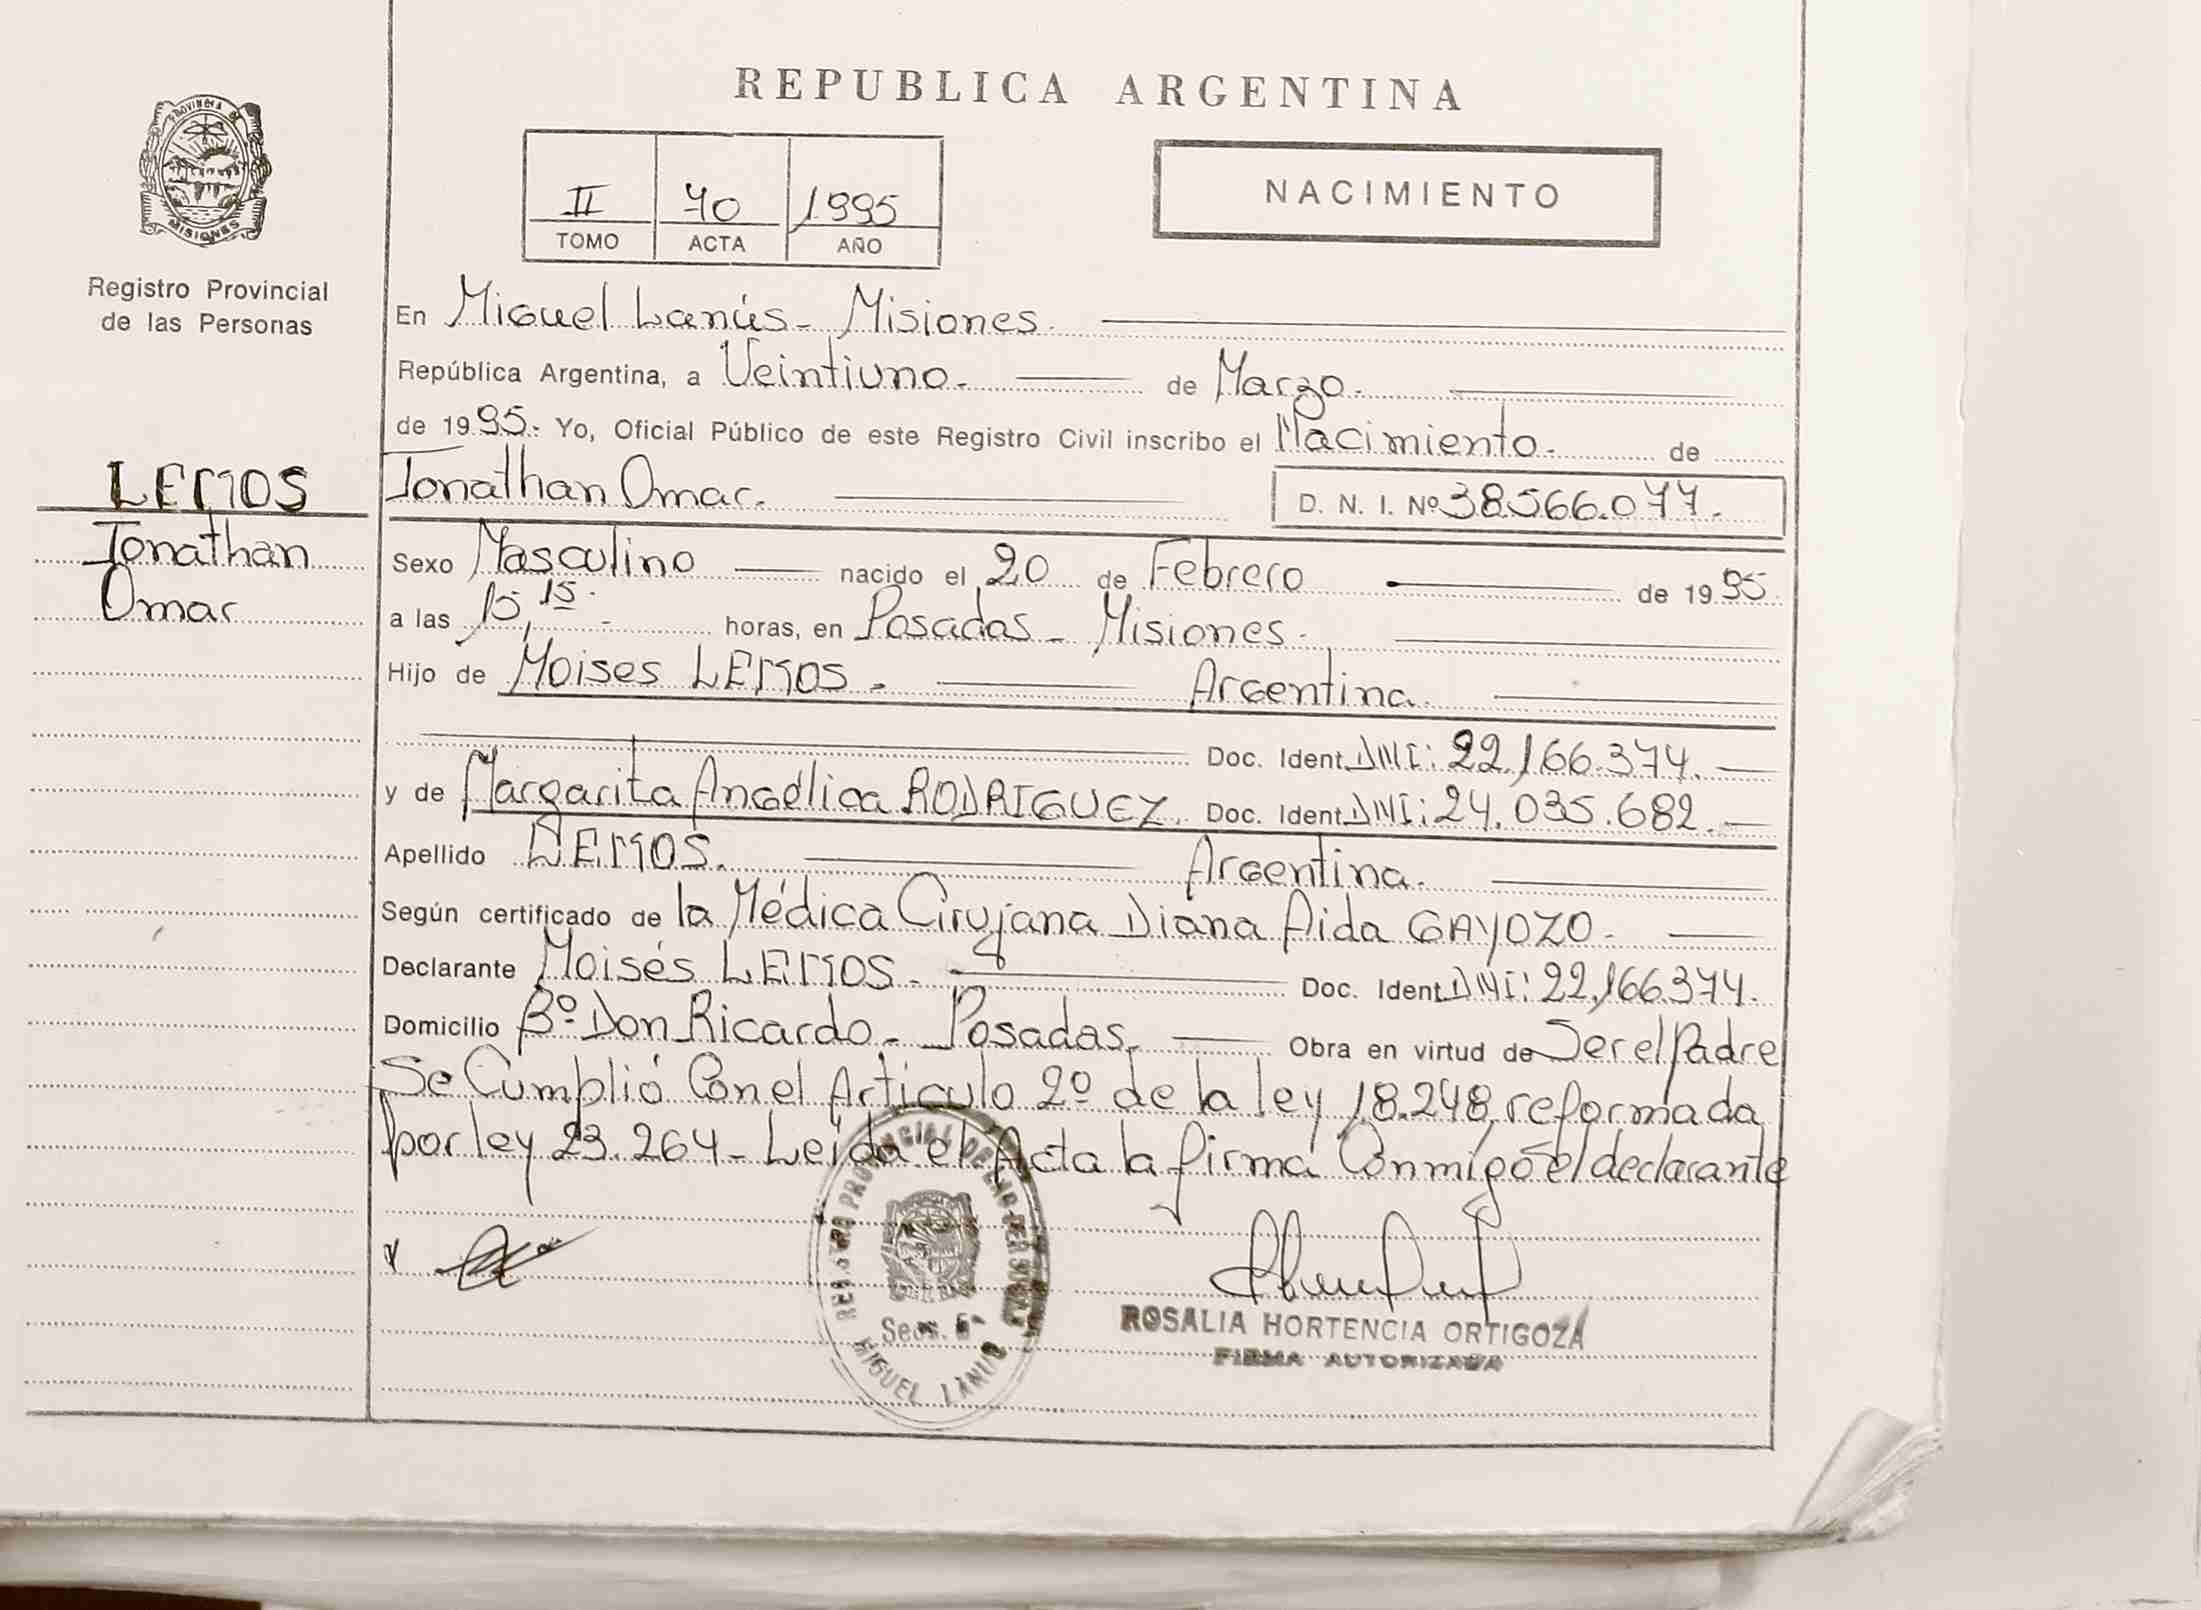 REPUBLICA ARGENTINA
PROVINCIA DE
MISIONES
Registro Provincial
de las Personas
II 70 1995
TOMO ACTA AÑO
NACIMIENTO
En Miguel Lanús - Misiones.
República Argentina, a Veintiuno. de Marzo.
de 1995. Yo, Oficial Público de este Registro Civil inscribo el Nacimiento. de
LEMOS
Jonathan
Omar
Jonathan Omar. D. N. I. Nº 38.566.077.
Sexo Masculino nacido el 20 de Febrero de 1995
a las 15,15. horas, en Posadas - Misiones.
Hijo de Moises LEMOS. Argentina.
Doc. Ident. DNI: 22.166.374.
y de Margarita Angélica RODRIGUEZ. Doc. Ident. DNI: 24.035.682.
Apellido LEMOS. Argentina.
Según certificado de la Médica Cirujana Diana Aida GAYOZO.
Declarante Moisés LEMOS. Doc. Ident. DNI: 22.166.374.
Domicilio Bº Don Ricardo - Posadas. Obra en virtud de Ser el Padre
Se Cumplió Con el Articulo 2º de la ley 18.248, reformada
por ley 23.264 - Leída el Acta la firma Conmigo el declarante
REGISTRO PROVINCIAL DE LAS PERSONAS
Secc. 5ª
MIGUEL LANUS
ROSALIA HORTENCIA ORTIGOZA
FIRMA AUTORIZADA